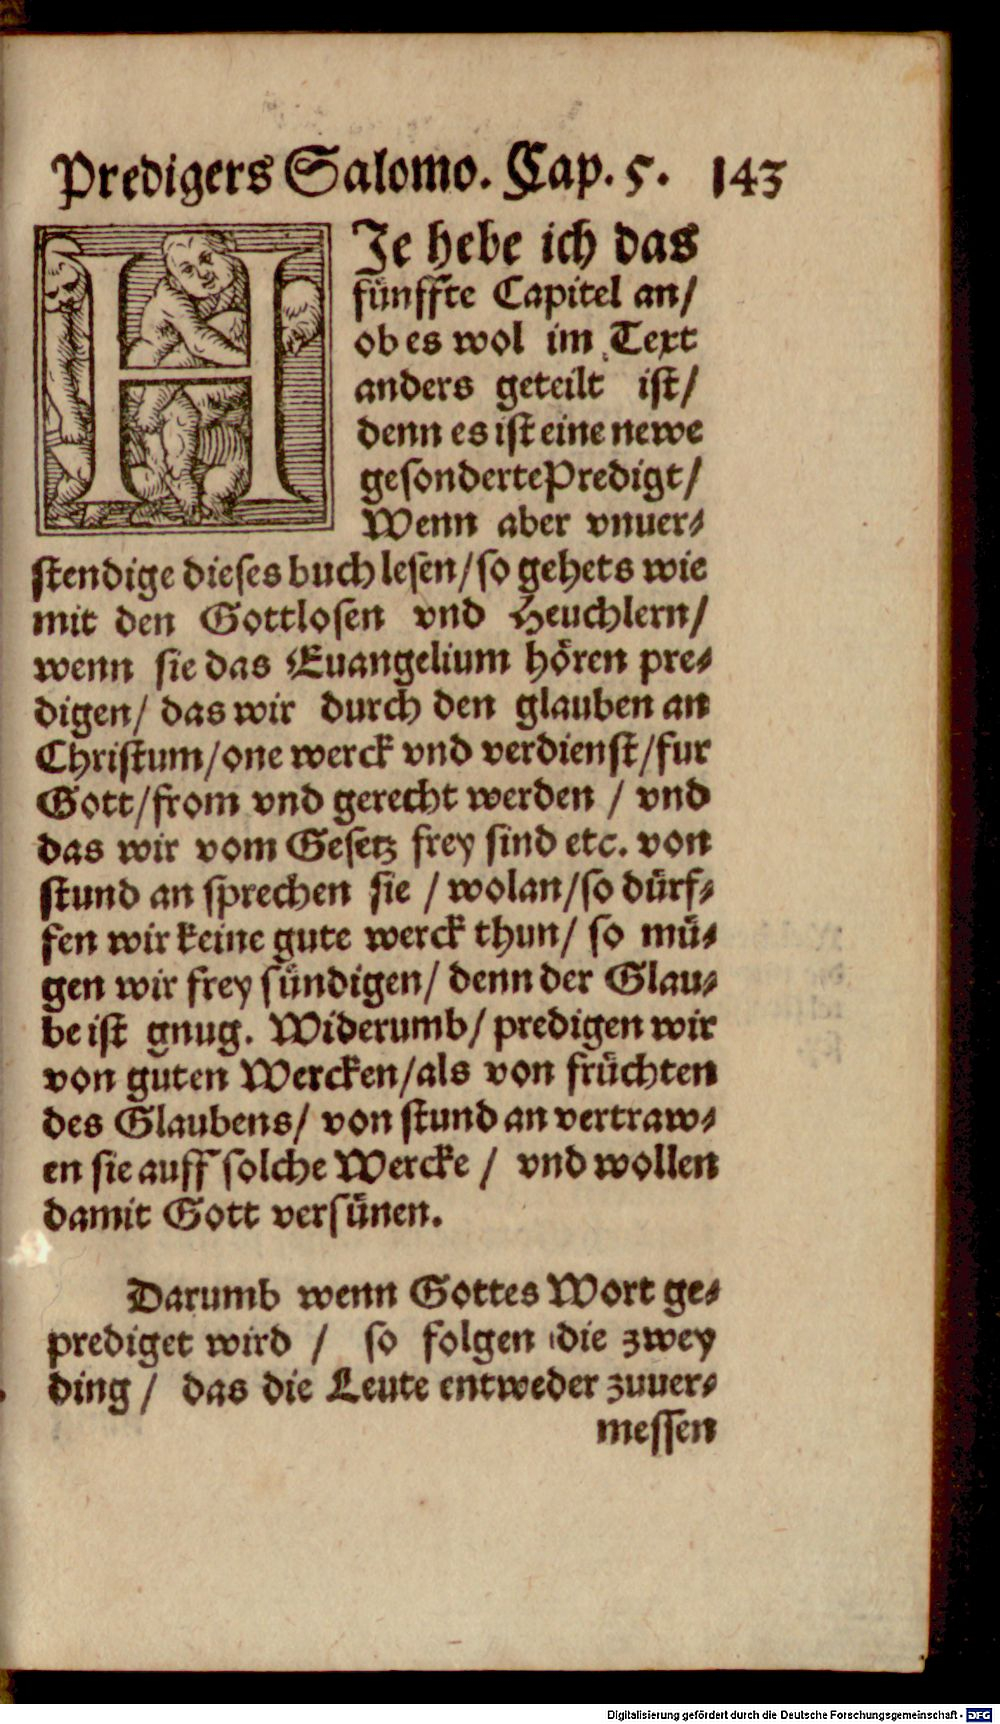 Predigers Salomo. Cap. 5. 143
HJe hebe ich das
fünffte Capitel an/
ob es wol im Text
anders geteilt ist/
denn es ist eine newe
gesonderte Predigt/
Wenn aber vnuer-
stendige dieses buch lesen/ so gehets wie
mit den Gottlosen vnd Heuchlern/
wenn sie das Euangelium hören pre-
digen/ das wir durch den glauben an
Christum/ one werck vnd verdienst/ fur
Gott/ from vnd gerecht werden / vnd
das wir vom Gesetz frey sind etc. von
stund an sprechen sie / wolan/ so dürf-
fen wir keine gute werck thun/ so mü-
gen wir frey sündigen/ denn der Glau-
be ist gnug. Widerumb/ predigen wir
von guten Wercken/ als von früchten
des Glaubens/ von stund an vertraw-
en sie auff solche Wercke / vnd wollen
damit Gott versünen.
Darumb wenn Gottes Wort ge-
prediget wird / so folgen die zwey
ding / das die Leute entweder zuuer-
messen
Digitalisierung gefördert durch die Deutsche Forschungsgemeinschaft - DFG